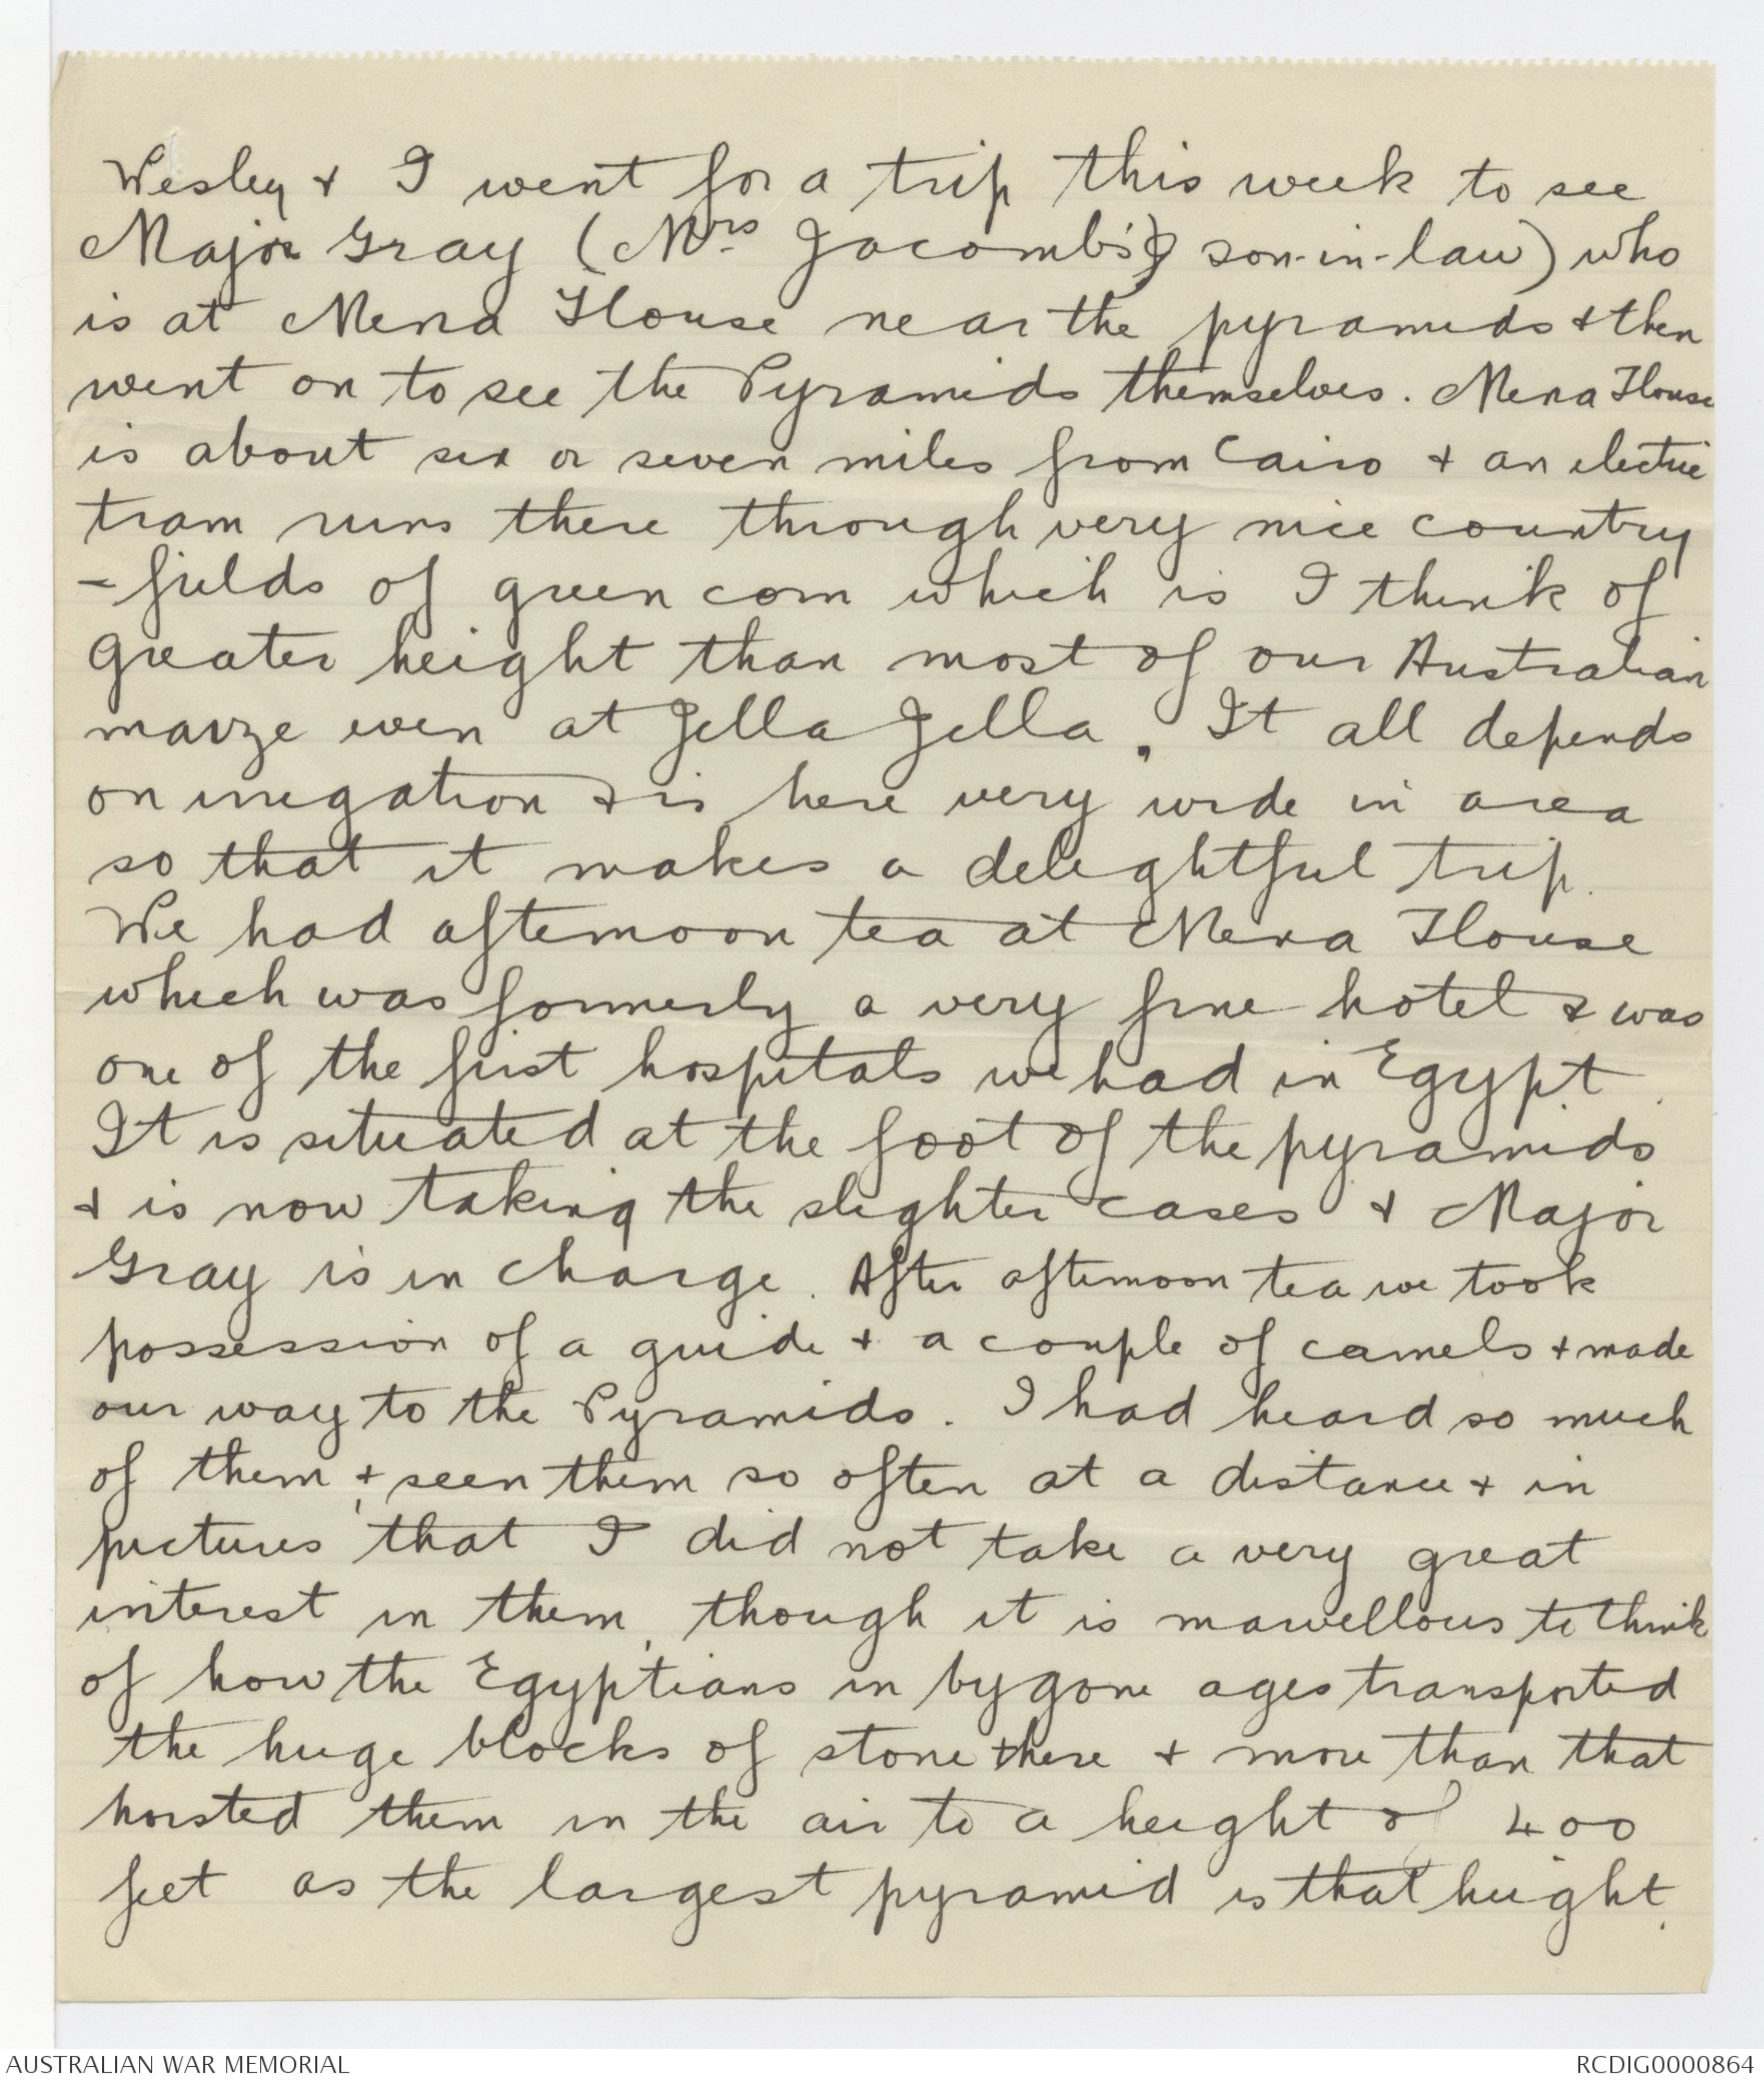 Wesley & I went for a trip this week to see
Major Gray (Mrs Jacomb's) son-in-law) who
is at Mena House near the pyramids & then
went on to see the Pyramids themselves. Mena House
is about six or seven miles from Cairo & an electric
tram runs there through very nice country
- fields of green corn which is I think of
greater height than most of our Australian
maize even at Jella Jella. It all depends
on irrigation & is here very wide in area
so that it makes a delightful trip.
We had afternoon tea at Mena House
which was formerly a very fine hotel & was
one of the first hospitals we had in Egypt.
It is situated at the foot of the pyramids
& is now taking the slighter cases & Major
Gray is in charge. After afternoon tea we took
possession of a guide & a couple of camels & made
our way to the Pyramids. I had heard so much
of them, & seen them so often at a distance & in
pictures that I did not take a very great
interest in them, though it is marvellous to think
of how the Egyptians in bygone ages transported
the huge blocks of stone there & more than that
hoisted them in the air to a height of 400
feet as the largest pyramid is that height.
AUSTRALIAN WAR MEMORIAL
RCDIG0000864